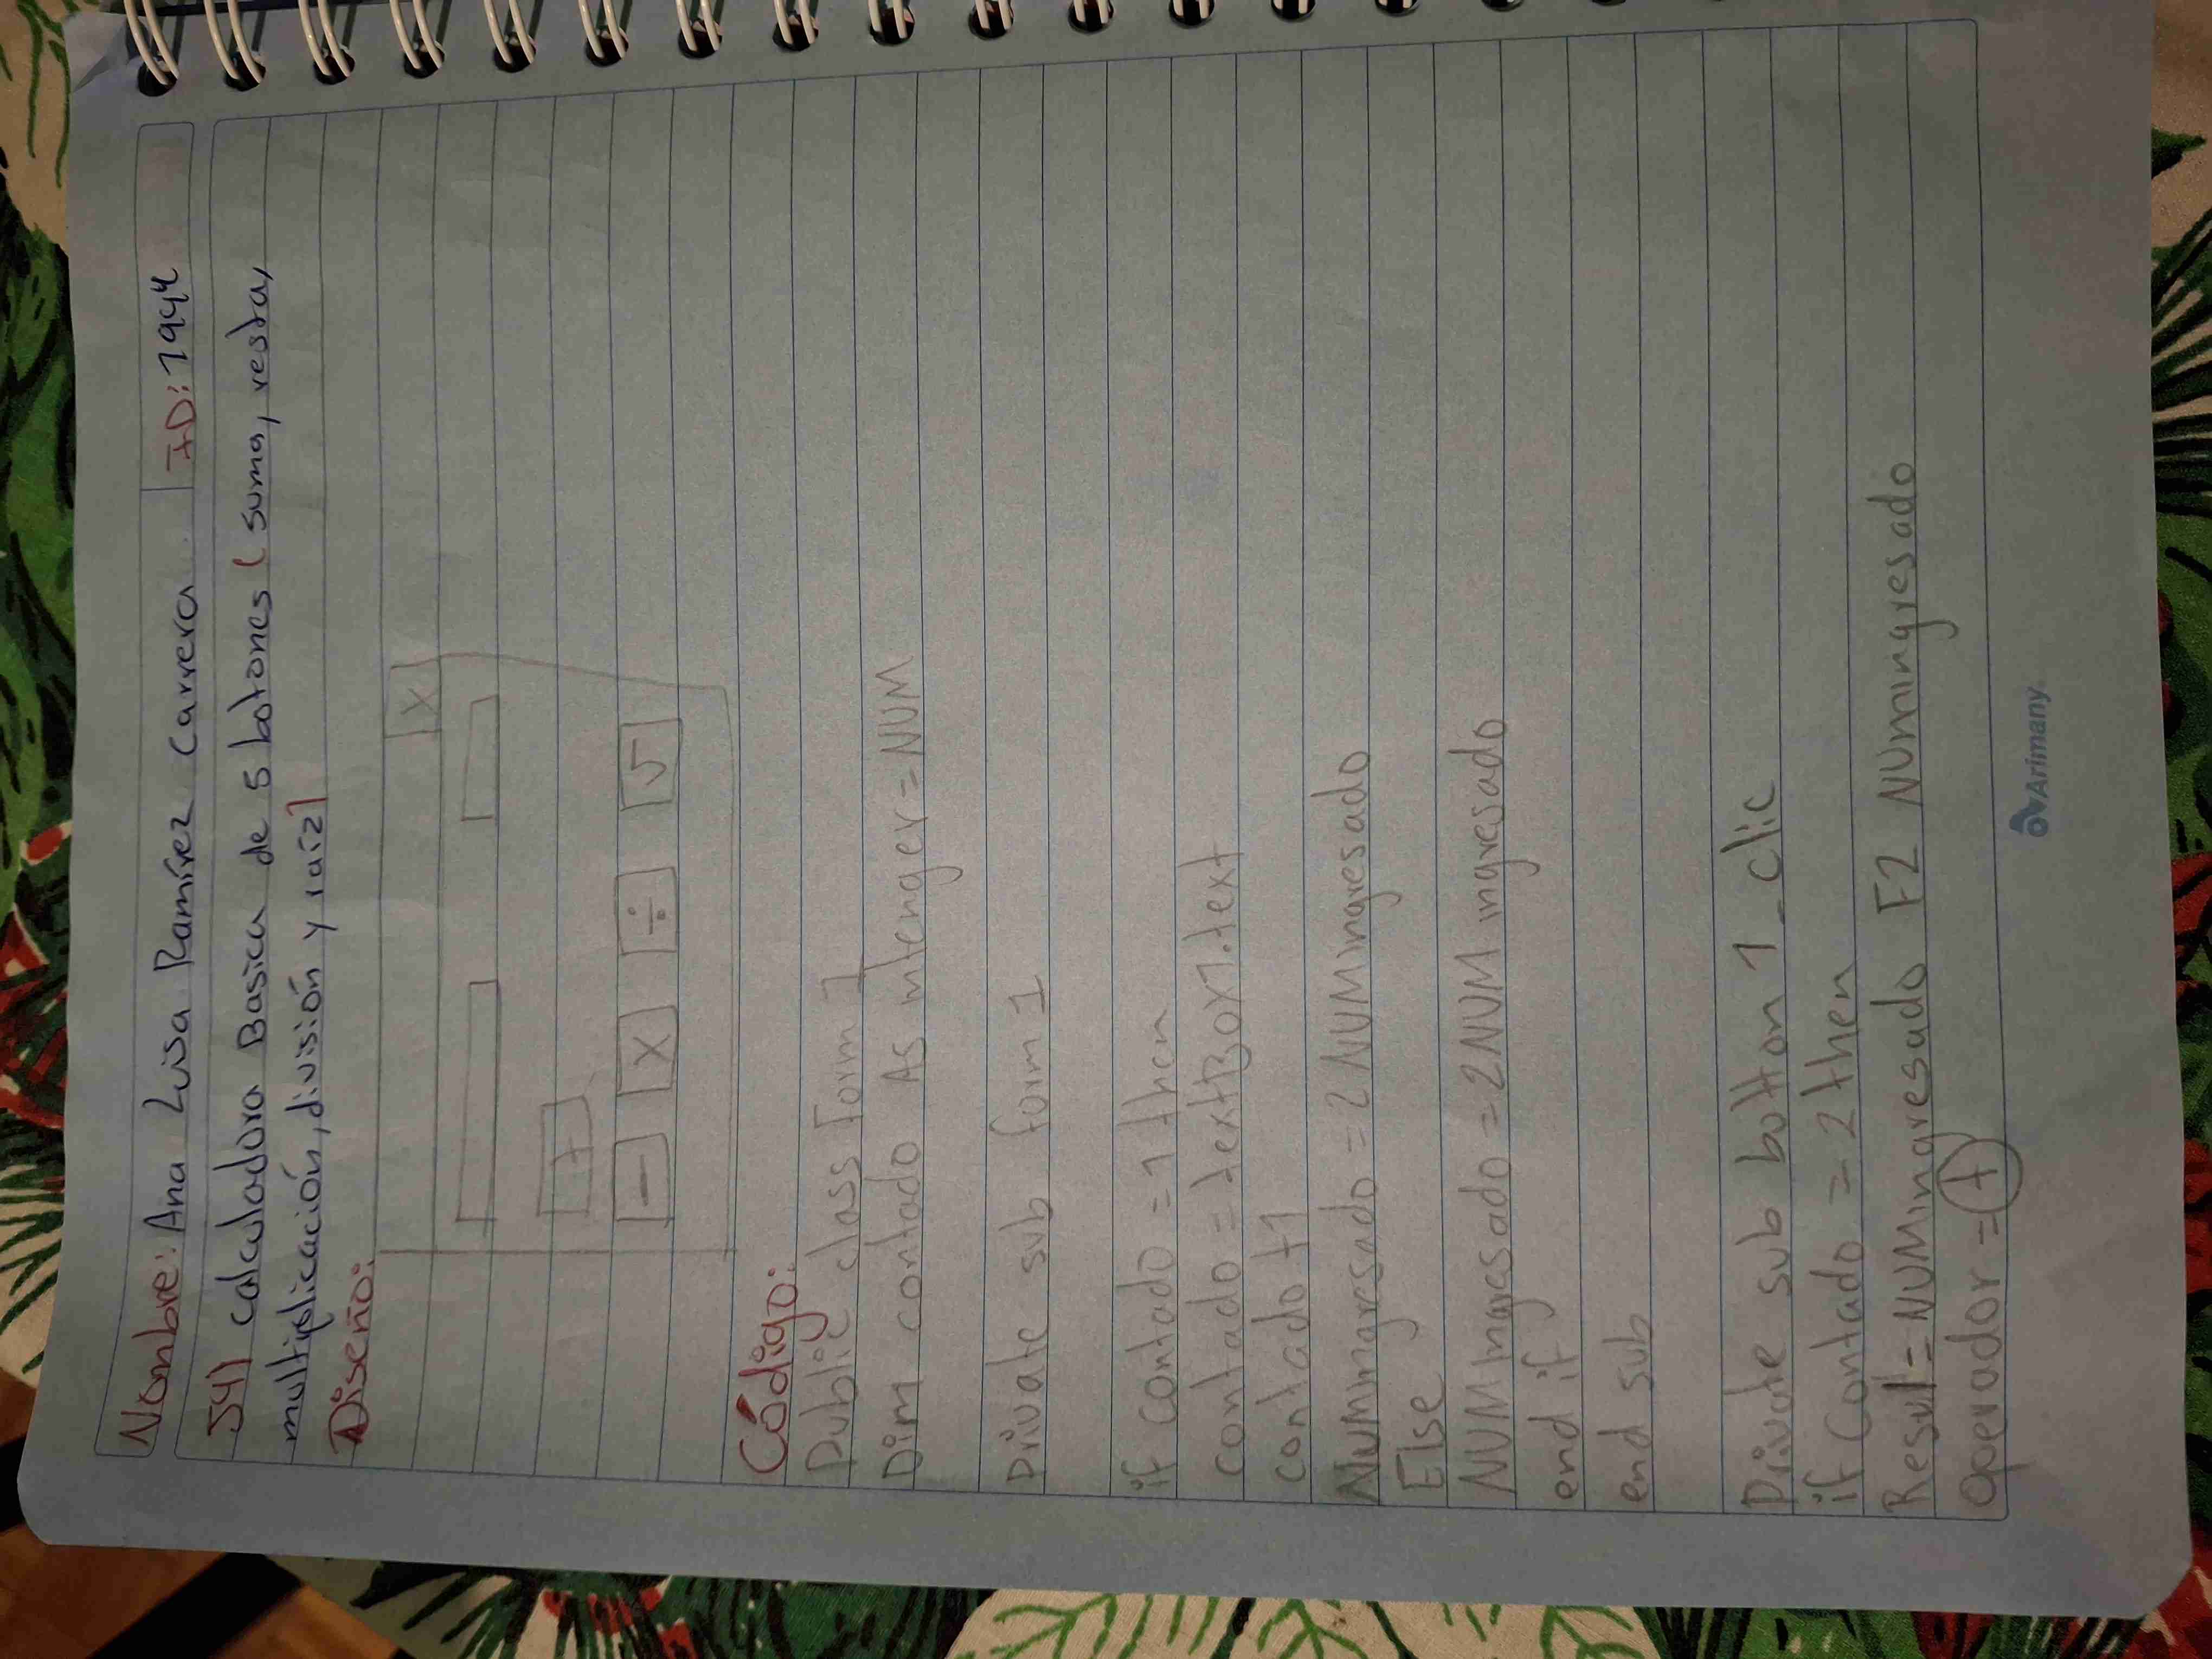 Nombre: Ana Luisa Ramírez Carrera ID: 1944
J4) calculadora Basica de 5 botones (suma, resta,
multiplicación, división y raíz)
Diseño:
X
+
- X ÷ √
Código:
Public class Form 1
Dim contado As intenger = NUM
Private sub form 1
if contado = 1 then
contado = textBox1.text
contado +1
Numingresado = 2 NUMingresado
Else
NUM Ingresado = 2 NUM ingresado
end if
end sub
Private sub botton 1_clic
if contado = 2 then
Result = NUMingresado F2 NUmingresado
Operador = +
Arimany